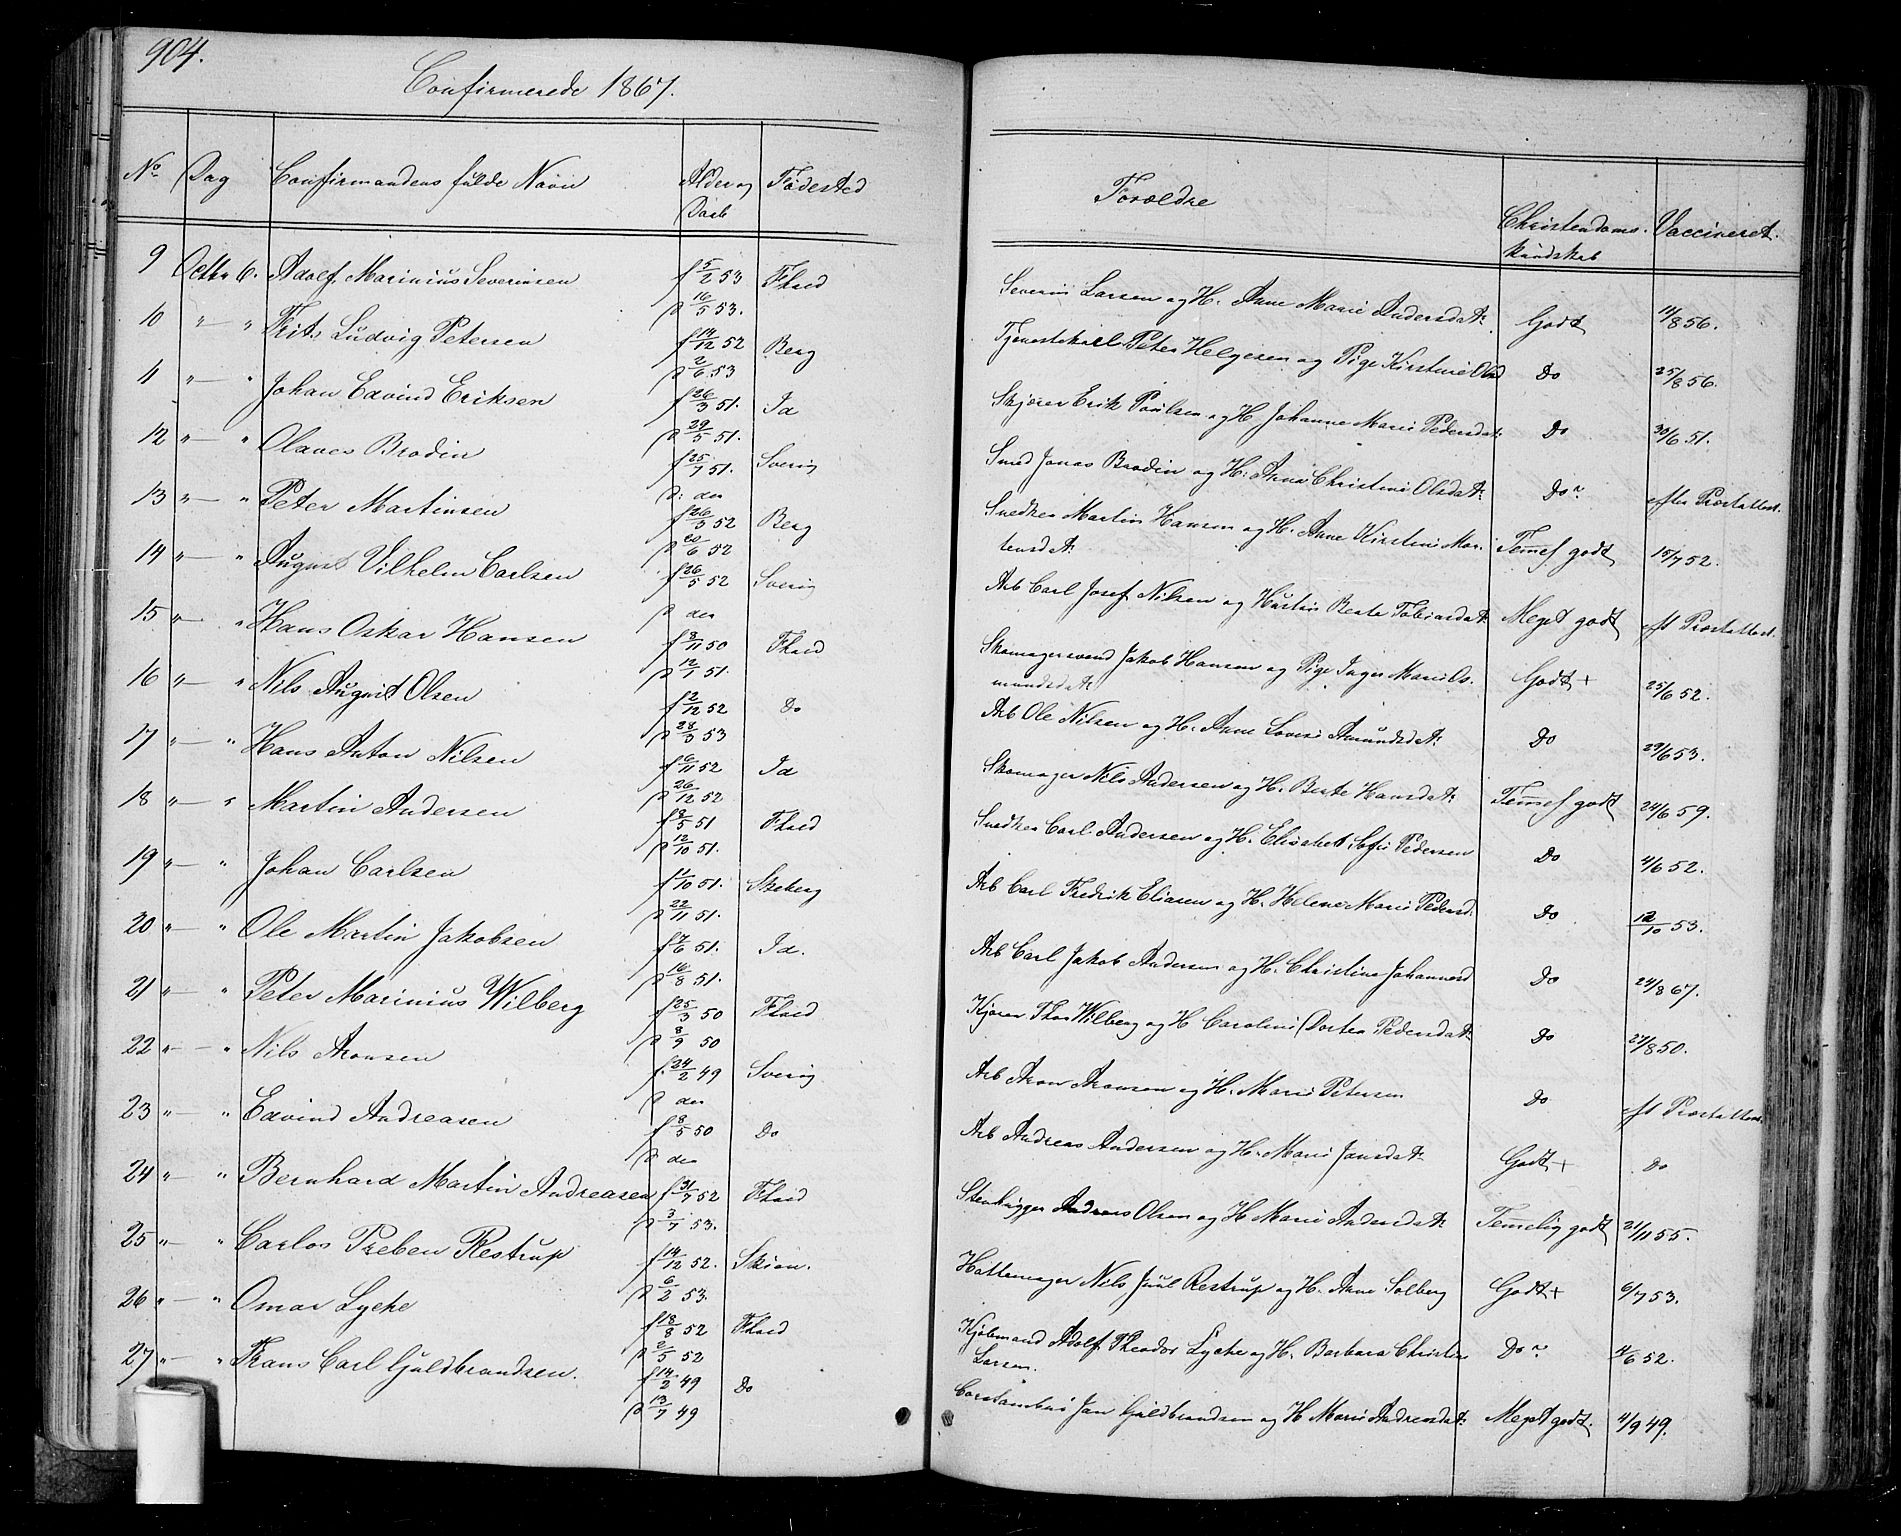 904.
Confirmerede 1867.
No Dag Confirmandens fulde Navn Alder og Daab Fødested Forældre Christendoms- kundskab Vaccineret.
9 Octbr 6. Adolf Marinius Severinsen f 5/2 53 Fhald Severin Larsen og H. Anne Marie Andersdat. Godt 14/8 56.
d 16/5 53.
10 " — " Frits Ludvig Petersen f 14/12 52 Berg Tjenestekarl Peter Helgesen og Pige Kirstine Olsd Do 25/8 56.
d 2/6 53
11 " — " Johan Edvind Eriksen f 26/3 51. Id Skjører Erik Poulsen og H Johanne Marie Pedersdat. Do 30/6 51.
d 29/5 51.
12 " — " Olaves Brodin f 25/7 51. Sverig Smed Jonas Brodin og H. Anna Christine Olsdat. Do efter Præstattest.
d: der
13 " — " Peter Martinsen f 26/3 52 Berg Snedker Martin Hansen og H. Anne Kirstine Mor- Temel. godt 15/7 52.
d 20/6 52 tensdat.
14 " — " August Vilhelm Carlsen f 26/5 52 Sverig Arb Carl Josef Nilsen og Hustru Berte Tobiasdat. Meget godt eft Præstattest.
d der
15 " — " Hans Oskar Hansen f 8/11 50 Fhald Skomagersvend Jakob Hansen og Pige Inger Marie Os- Godt + 25/6 52.
d 12/1 51. mundsdat.
16 " — " Nils August Olsen f 2/12 52 Do Arb Ole Nilsen og H. Anne Lovise Amundsdat. Do 29/6 53.
d 28/3 53
17 " — " Hans Anton Nilsen f 6/11 52 Id Skomager Nils Andersen og H. Berte Hansdat. Temel. godt 24/6 59.
d 26/12 52
18 " — " Martin Andersen f 8/5 51 Fhald Snedker Carl Andersen og H. Elisabet Sofie Pedersen Do 4/6 52.
d 12/10 51.
19 " — " Johan Carlsen f 1/10 51. Skeberg Arb Carl Fredrik Eliasen og H. Helene Marie Pedersd. Do 12/10 53.
d 22/11 51.
20 " — " Ole Martin Jakobsen f 7/6 51. Id. Arb Carl Jakob Andersen og H. Christine Johannesd Do 24/8 67.
d 16/8 51.
21 " — " Peter Marinius Wilberg f 25/3 50 Fhald Kjører Thor Wilberg og H Caroline Dortea Pedersdat. Do 27/8 50.
d 8/9 50
22 " — " Nils Aronsen f. 24/2 49 Sverig Arb Aron Aronsen og H. Marie Petersen Do eft Præstattest.
d der
23 " — " Edvind Andreasen f 8/5 50 Do Arb Andreas Andersen og H. Marie Jansdat. Godt + Do
d der
24 " — " Bernhard Martin Andreasen f 31/7 52 Fhald Stenhugger Andreas Olsen og H Marie Andersdat. Temelig godt 21/11 55.
d 3/7 53.
25 " — " Carlos Preben Restrup f 14/12 52. Skien. Hattemager Nils Juul Restrup og H. Anne Solberg Godt + 6/7 53.
d 6/2 53.
26 " — " Omar Lyche f 18/8 52 Fhald Kjøbmand Adolf Theodor Lyche og H. Barbara Christine Do 4/6 52.
d 2/5 52 Larsen.
27 " — " Frans Carl Guldbrandsen. f 14/2 49 Do Jan Guldbrandsen og H Marie Andersdat. Meget godt. 11/9 49.
d 13/7 49